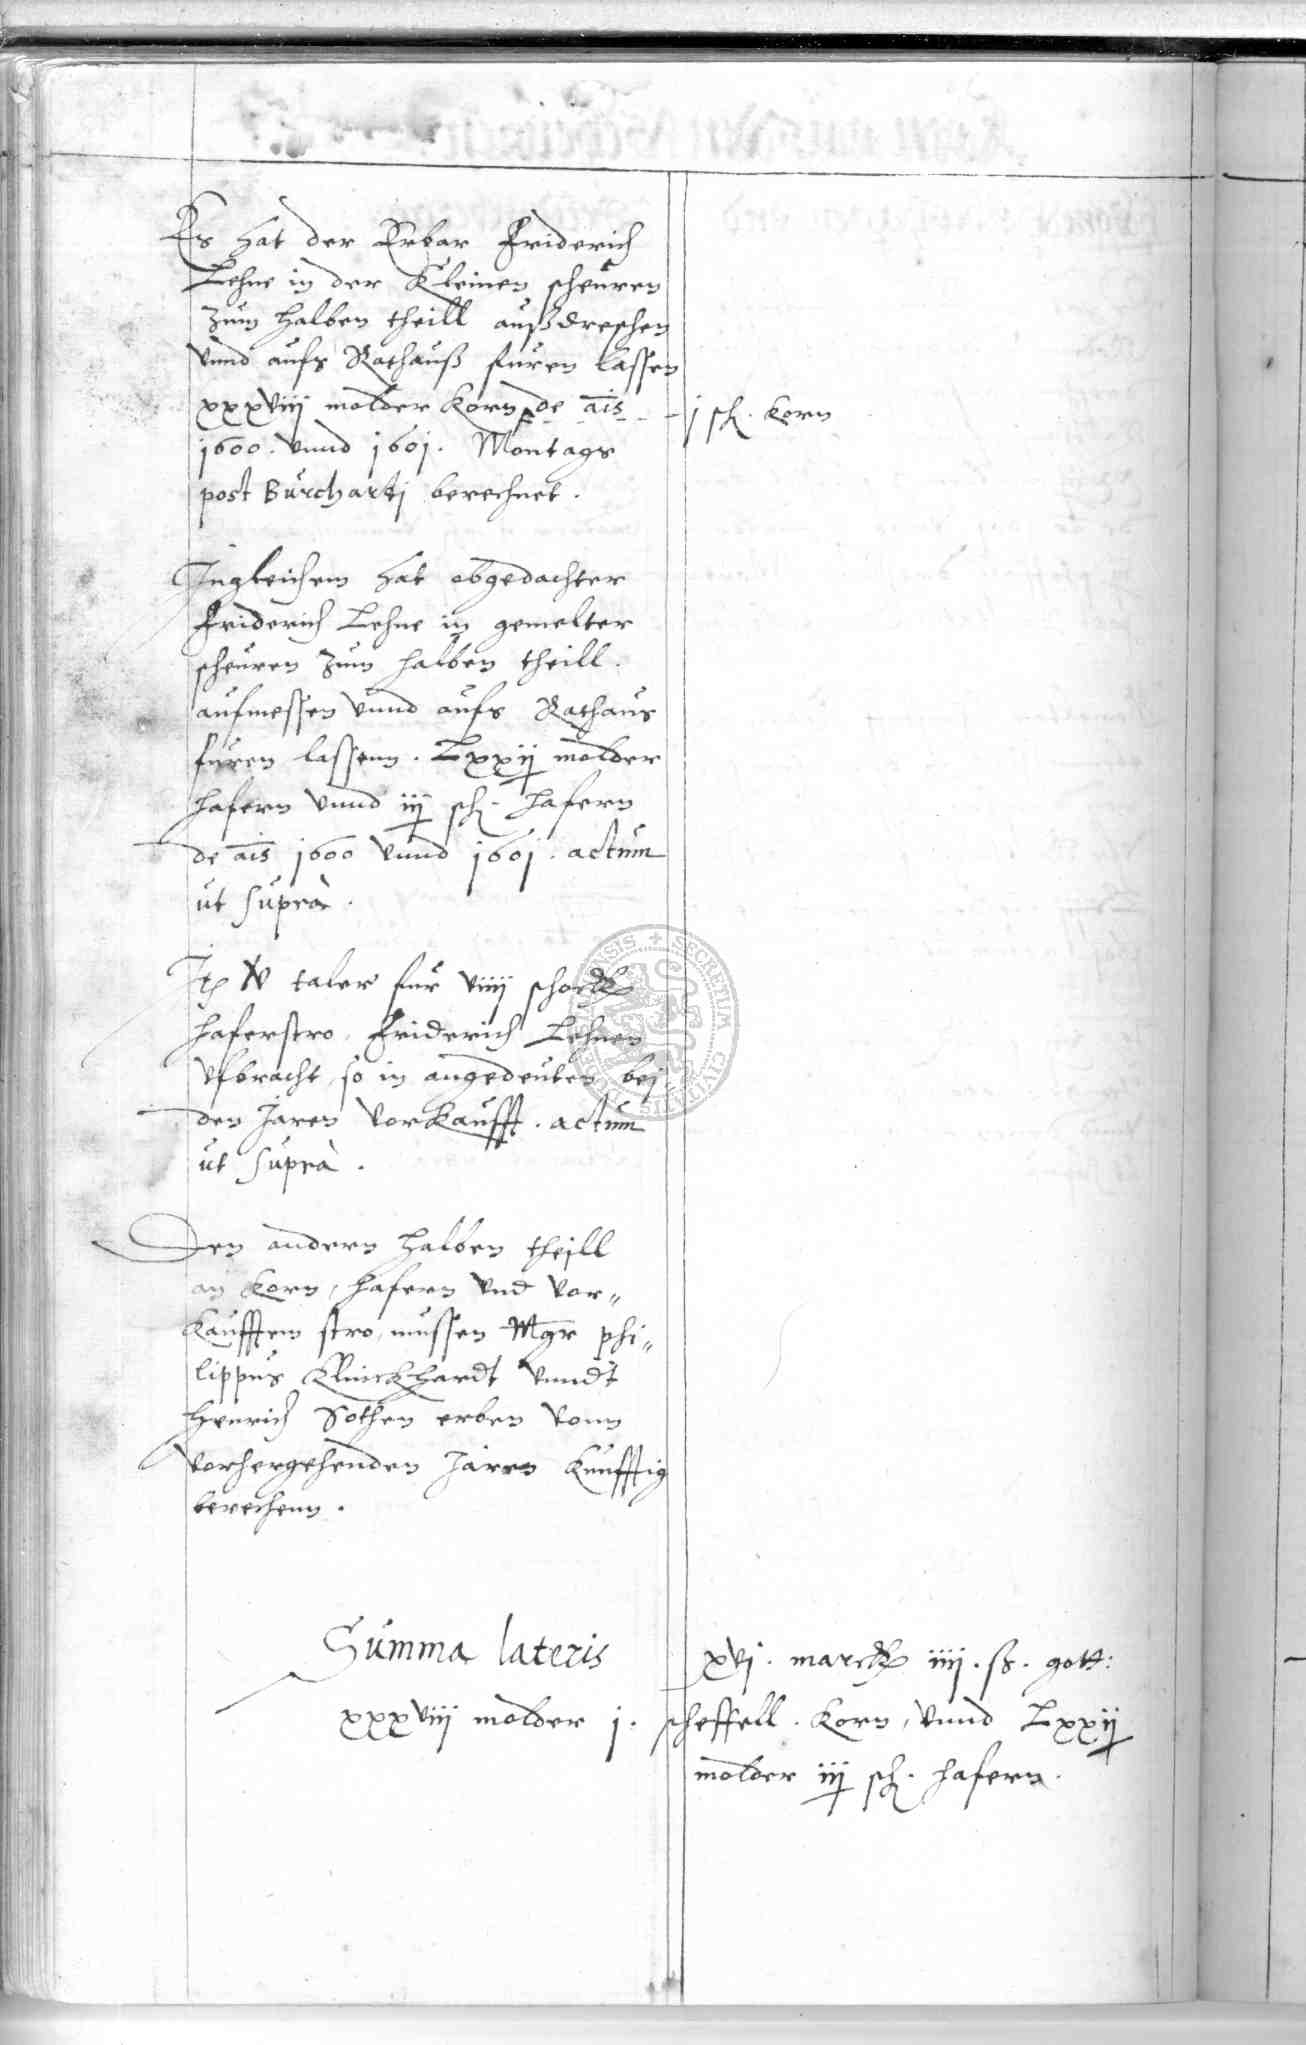 Es hat der Erbar Friderich
Lehne in der Kleinen scheuren
zum halben theill außdreschen
vnnd aufs Rathauß furen lassen
xxxviij molder Korn de ais j sch. Korn
1600. vnnd 1601. Montags
post Burcharti berechnet.
Ingleichem hat obgedachter
Friderich Lehne in gemelter
scheuren zum halben theill
aufmessen vnnd aufs Rathaus
furen lassenn. Lxxij molder
hafern vnnd iij sch. hafern
de ais 1600 vnnd 1601. actum
ut suprà.
It. taler fur viiij schock
haferstro, Friderich Lehnen
vfbracht, so in angedeuten bei-
den Jaren vorkaufft. actum
ut suprà.
Den andern halben theill
an Korn, hafern vnd vor„
kaufftem stro, mussen Mgr phi„
lippus Klinckhardt vnndt
Henrich Sothen erben vonn
vorhergehenden Jaren kunfftig
berechenn.
Summa lateris xvj. marck iiij. ß. gott:
xxxviij molder j. scheffell. Korn, vnnd Lxxij
molder iij sch. hafern.
SECRETUM CIVITATIS